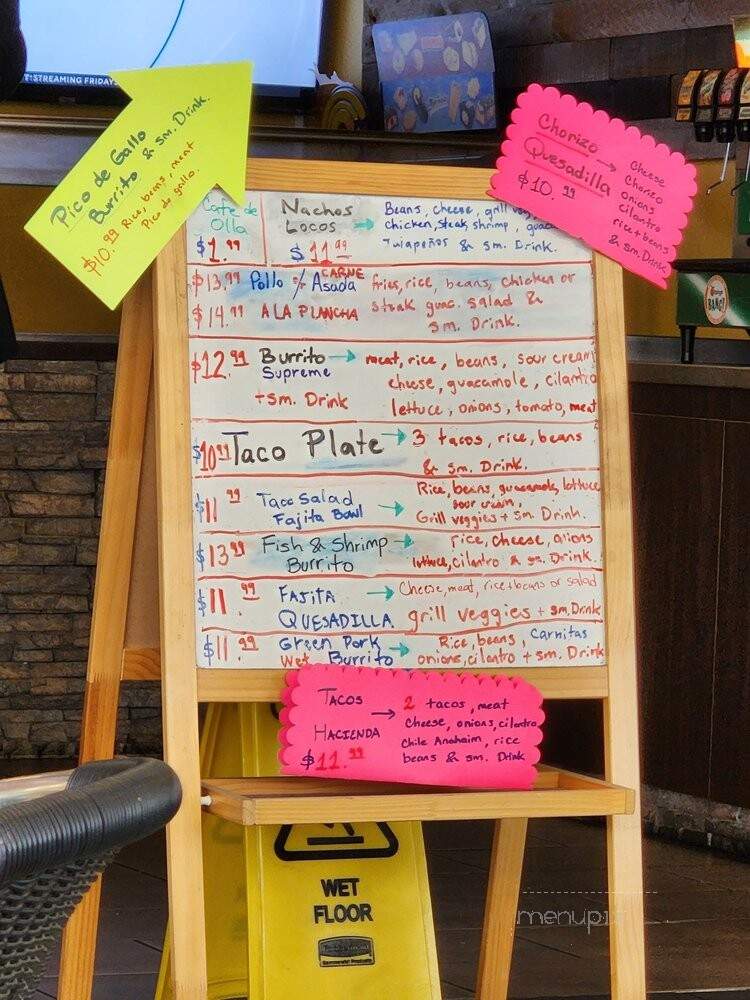 T:STREAMING FRIDAY
Pico de Gallo
Burrito & sm. Drink.
$10.99 Rice, beans, meat
Pico de gallo.
Chorizo
Quesadilla →
$10.99
Cheese
Chorizo
onions
cilantro
rice + beans
& sm. Drink
Cafe de
Olla
$1.99
Nachos
Locos →
$11.99
Beans, cheese, grill veg
chicken, steak, shrimp, guac
Jalapeños & sm. Drink.
$13.99 Pollo % Asada CARNE
$14.99 A LA PLANCHA
fries, rice, beans, chicken or
steak guac. salad &
sm. Drink.
$12.99 Burrito →
Supreme
+ sm. Drink
meat, rice, beans, sour cream
cheese, guacamole, cilantro
lettuce, onions, tomato, meat
$10.99 Taco Plate → 3 tacos, rice, beans
& sm. Drink.
$11.99 Taco Salad
Fajita Bowl →
Rice, beans, guacamole, lettuce
sour cream,
Grill veggies + sm. Drink.
$13.99 Fish & Shrimp →
Burrito
rice, cheese, onions
lettuce, cilantro & sm. Drink.
$11.99 FAJITA →
QUESADILLA
Cheese, meat, rice + beans or salad
grill veggies + sm. Drink
$11.99 Green Pork →
Wet Burrito
Rice, beans, Carnitas
onions, cilantro + sm. Drink
TACOS
HACIENDA →
$11.99
2 tacos, meat
cheese, onions, cilantro,
chile Anahaim, rice
beans & sm. Drink
WET
FLOOR
Commercial Products
menupi